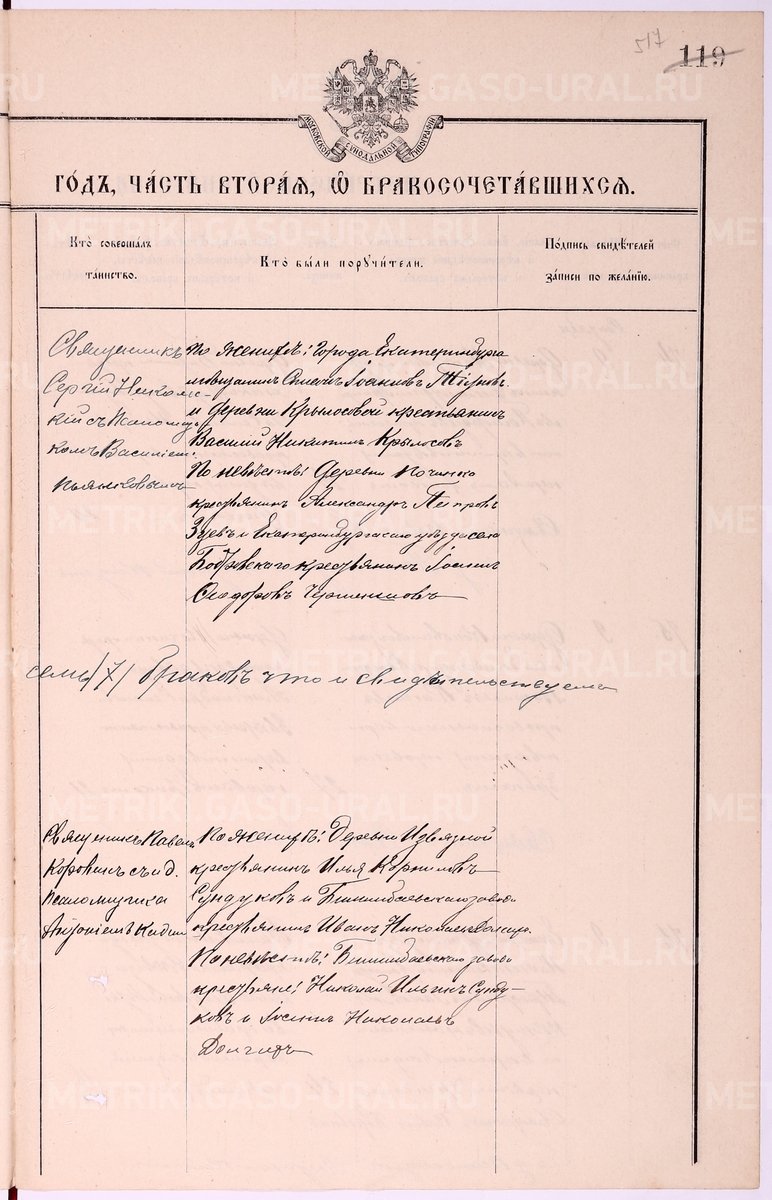 517
119
МОСКОВСКОЙ СѴНОДАЛЬНОЙ ТИПОГРАФІИ
ГО́ДЪ, ЧА́СТЬ ВТОРА́Я, Ѡ҆ БРАКОСОЧЕТА́ВШИХСЯ.
Кто̀ соверша́лъ
та́инство.
Кто̀ бы́ли пору́чители.
По́дпись свидѣ́телей
за́писи по жела́нїю.
Священникъ
Сергій
кій съ Псаломщи
комъ Василіем
По женихѣ: Города Екатеринбурга
мѣщанинъ Стефанъ Іоакимовъ
и деревни Крылосовой крестьянинъ
Василій Никитинъ Крылосовъ
По невѣстѣ: Деревни Починка
крестьянинъ Александръ Петровъ
Зуевъ и Екатеринбургскаго уѣзда села
Бобровскаго крестьянинъ Іоаннъ
Ѳеодоровъ
семь /7/ браковъ что и свидѣтельствуемъ
Священникъ Павелъ
Коровинъ съ и. д.
Псаломщика
Антоніемъ
По женихѣ: Деревни Извязной
крестьянинъ Илья Корниловъ
Сундуковъ и Билимбаевскаго завода
крестьянинъ Иванъ Николаевъ
По невѣстѣ: Билимбаевскаго завода
крестьяне: Николай Ильинъ Сунду-
ковъ и Іосифъ Николаевъ
METRIKI.GASO-URAL.RU